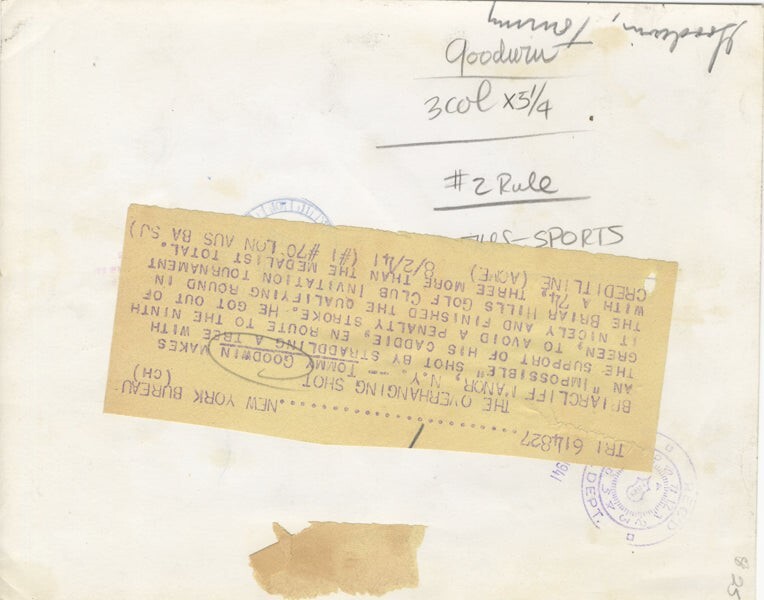 Goodwin, Tommy
Goodwin
3 col x 5 1/4
#2 Rule
SPORTS
TRI 614827 NEW YORK BUREAU
THE OVERHANGING SHOT (CH)
BRIARCLIFF MANOR, N.Y. -- TOMMY GOODWIN MAKES
AN "IMPOSSIBLE" SHOT BY STRADDLING A TREE WITH
THE SUPPORT OF HIS CADDIE, EN ROUTE TO THE NINTH
GREEN, TO AVOID A PENALTY STROKE. HE GOT OUT OF
IT NICELY AND FINISHED THE QUALIFYING ROUND IN
THE BRIAR HILLS GOLF CLUB INVITATION TOURNAMENT
WITH A 74, THREE MORE THAN THE MEDALIST TOTAL.
CREDITLINE (ACME) 8/2/41 (#1 #70 LON AUS BA SJ)
1941
REC'D
DEPT.
825